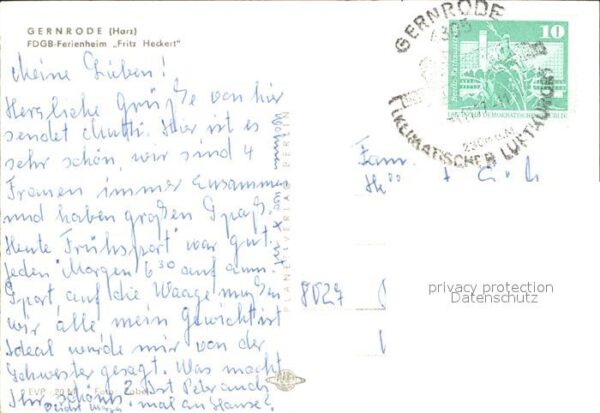 GERNRODE (Harz)
FDGB-Ferienheim „Fritz Heckert"
Meine Lieben!
Herzliche Grüße von hier
sendet Mutti. Hier ist es
sehr schön, wir sind 4
Frauen immer zusammen
und haben großen Spaß.
Heute "Frühsport" war gut.
Jeden Morgen 6³⁰ auf zum
Sport, auf die Waage mußten
wir alle mein Gewicht ist
Ideal wurde mir von der
Schwester gesagt. Was macht
Ihr schönes? Ist Peter auch
mal zu Hause?
EVP
PLANET-VERLAG BERLIN
GERNRODE
4305
KLIMATISCHER LUFTKURORT
10
DEUTSCHE DEMOKRATISCHE REPUBLIK
Fam.
8027
privacy protection
Datenschutz